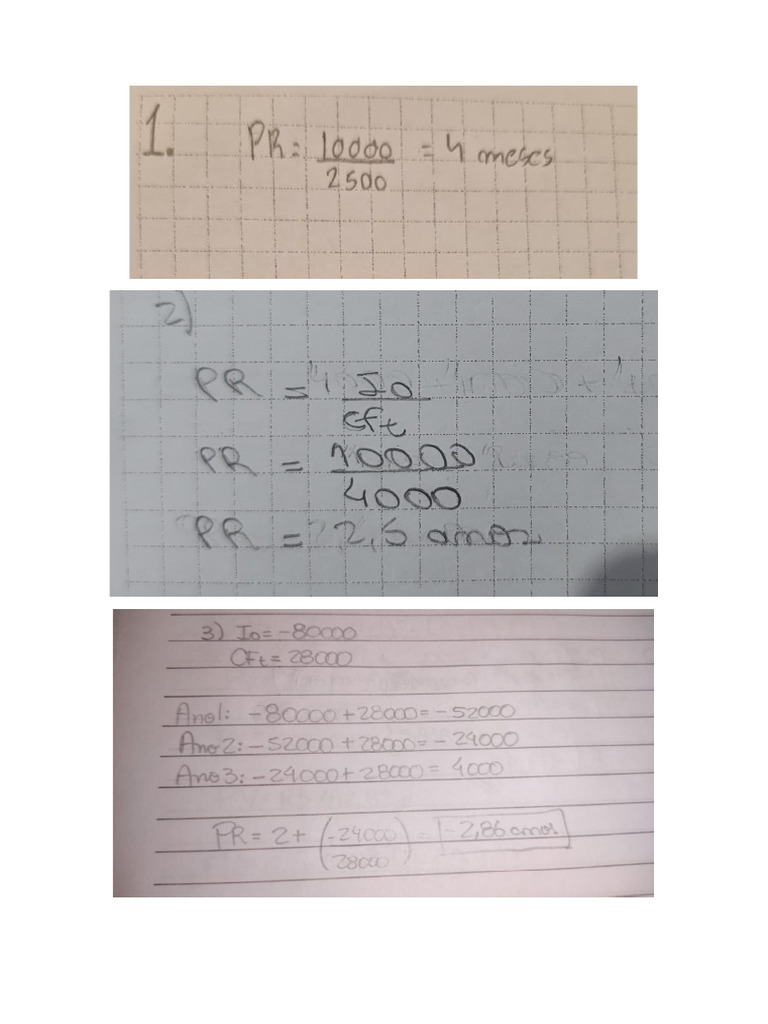 1. PR = 10000 / 2500 = 4 meses
2)
PR = I0 / Cft
PR = 10000 / 4000
PR = 2,5 anos
3) I0 = -80000
CFt = 28000
Ano1: -80000 + 28000 = -52000
Ano2: -52000 + 28000 = -24000
Ano3: -24000 + 28000 = 4000
PR = 2 + (-24000 / 28000) = -2,86 anos